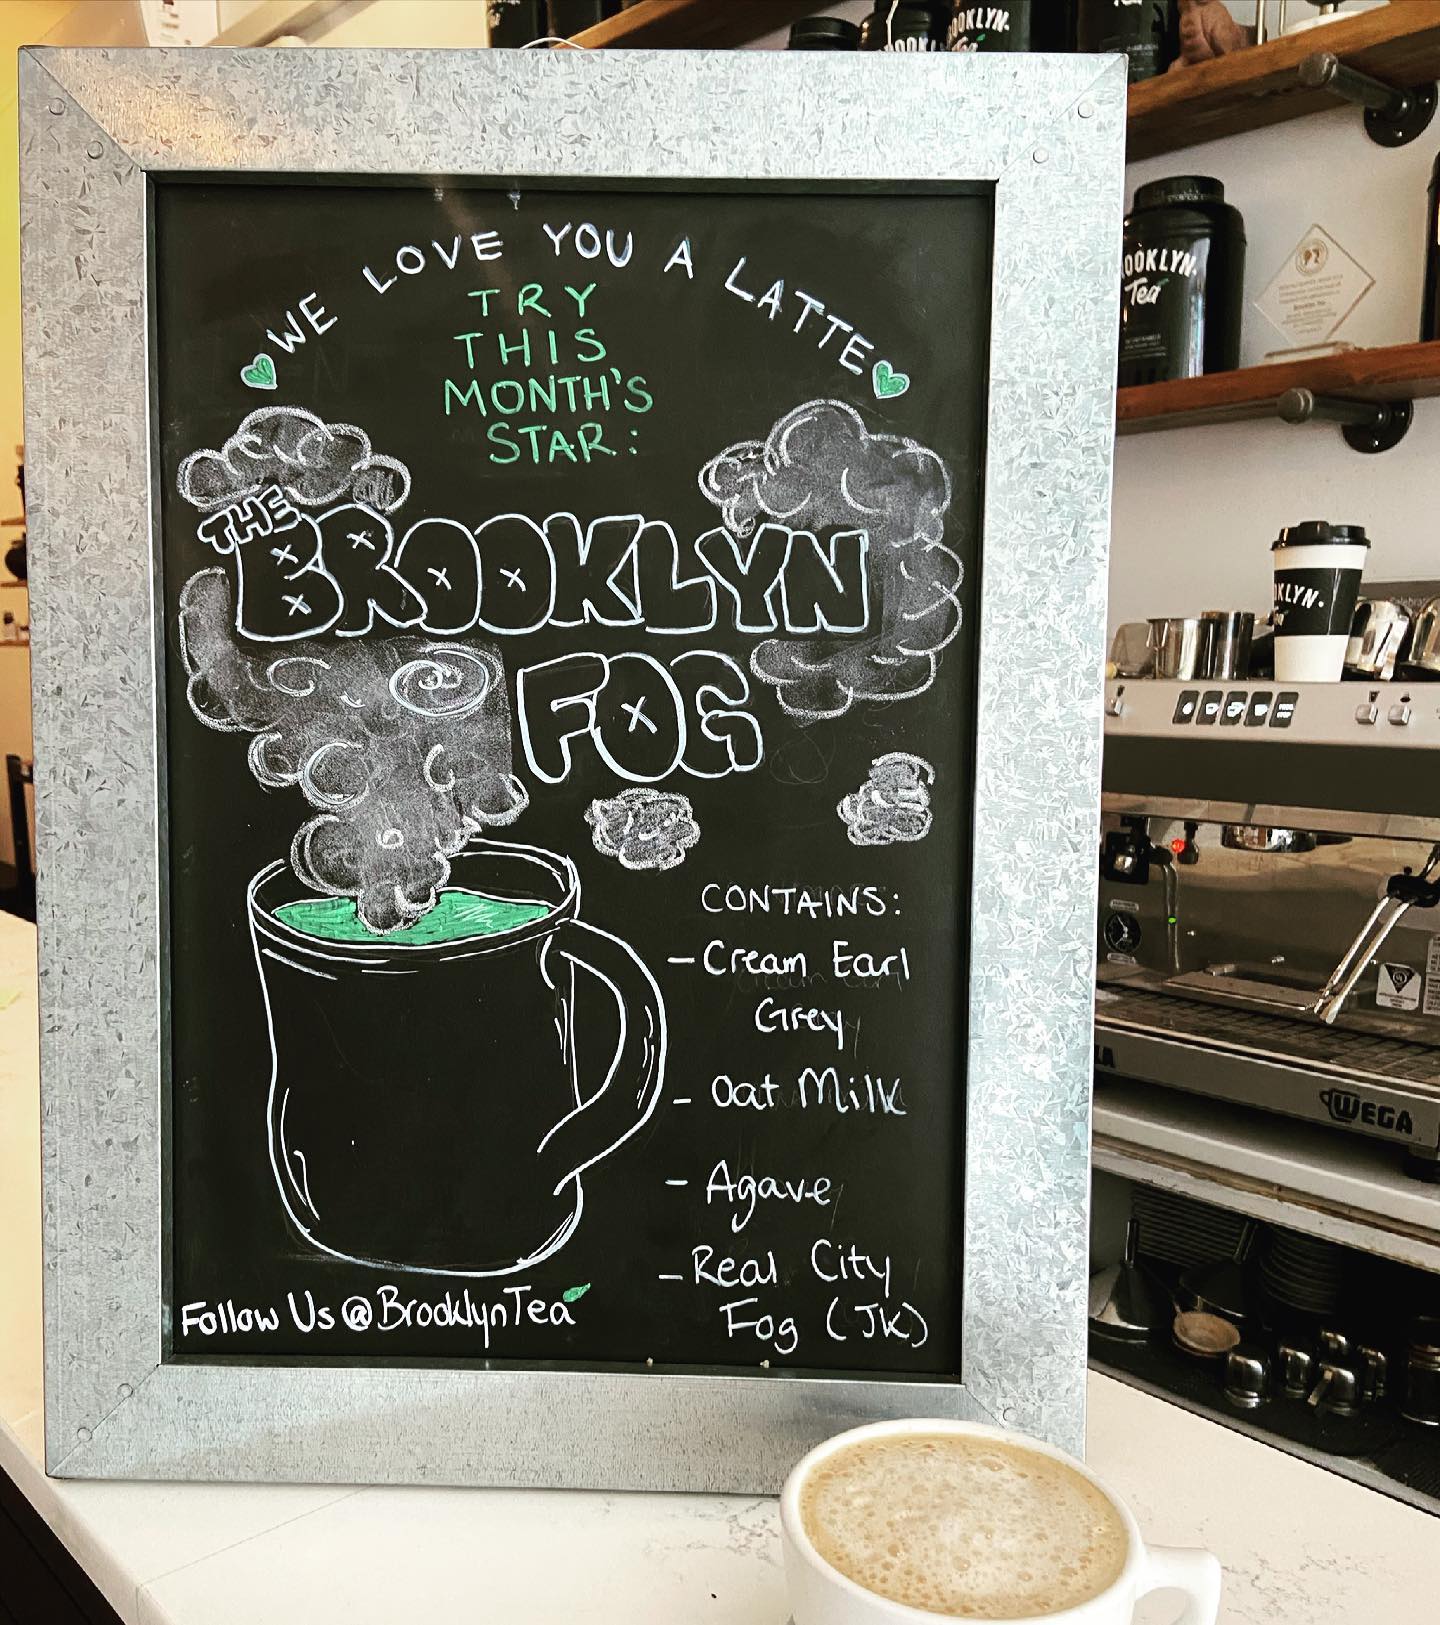 WE LOVE YOU A LATTE
TRY
THIS
MONTH'S
STAR:
THE
BROOKLYN
FOG
CONTAINS:
- Cream Earl
Grey
- Oat Milk
- Agave
- Real City
Fog (JK)
Follow Us @BrooklynTea
OOKLYN.
OOKLYN.
Tea
KLYN.
WEGA